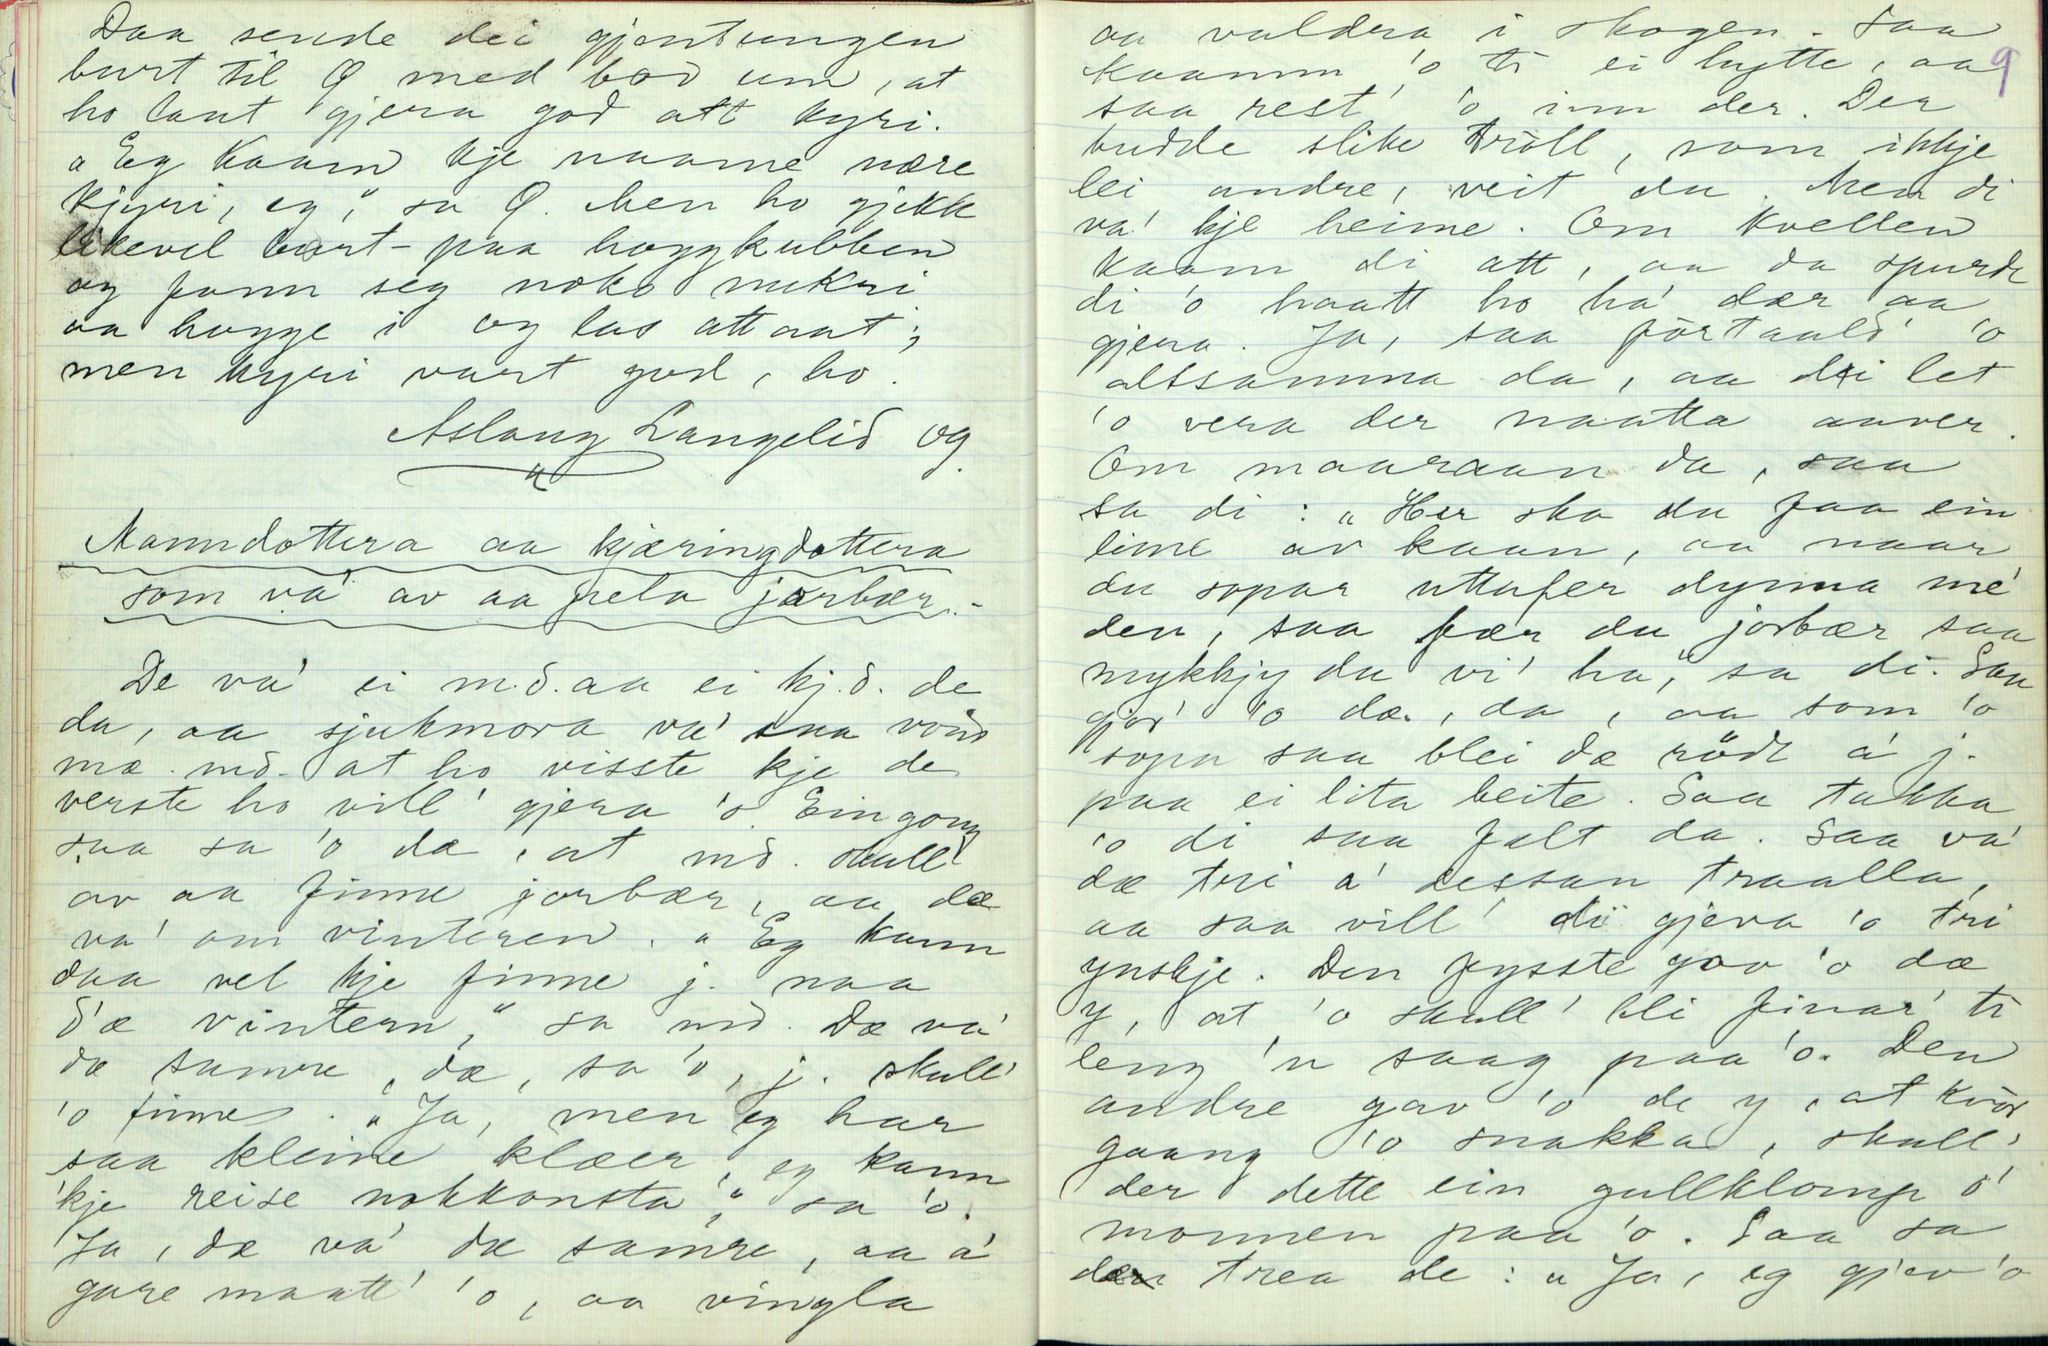 Daa sende dei gjentungen
burt til Ø med bod um, at
ho laut gjera god att kyri.
"Eg kaam kje naame nære
kjyri, eg," sa Ø. Men ho gjekk
likevel burt paa hoggkubben
og fann seg noko mukri
aa hogge i og las att aat;
men kyri vart god, ho.
Aslaug Langelid og
"
Manndottera aa kjæringdottera
som va' av aa leta jorbær.-
De va' ei m.d. aa ei kj.d. de
da, aa sjukmora va' saa vond
mæ md. at ho visste kje de
verste ho vill' gjera 'o. Ein gong
saa sa 'o da, at md. skull'
av aa finne jorbær, aa dæ
va' om vinteren. "Eg kann
daa vel kje finne j. naa
d'æ vintern," sa md. Dæ va'
dæ samre, dæ, sa 'o, j. skull'
'o finne. "Ja, men eg har
saa kleine klæer, eg kann
'kje reise nokkonsta'," sa 'o.
Ja, dæ va' dæ samre, aa a'
gare maatt' 'o, aa vingla
9
aa valdra i skogen. Saa
kaamm 'o ti ei hytte, aa
saa rest' 'o inn der. Der
budde slike tröll, som ikkje
lei andre, veit du. Men di
va' kje heime. Om kvellen
kaam di att, aa da spurde
di 'o haatt ho ha' dær aa
gjera. Ja, saa förtaald' 'o
altsamma da, aa dei let
'o vera der naatta aaver.
Om maaraan da, saa
sa di: "Her ska du faa ein
lime av kaan, aa naar
du sopar uttafer dynna me'
den, saa fær du jorbær saa
mykkjy du vi' ha," sa di. Saa
gjor' 'o dæ, da, aa som 'o
sopa saa blei dæ rödt a' j.
paa ei lita beite. Saa takka
'o di saa falt da. Saa va'
dæ tri a' dessan traalla,
aa saa vill' di gjeva 'o tri
ynskje. Den fysste gav 'o dæ
y, at 'o skull' bli finar' ti
leng 'n saag paa 'o. Den
andre gav 'o de y, at kvör
gaang 'o snakka, skull'
der dette ein gullklomp o'
monnen paa 'o. Saa sa
den trea de: "Ja, eg gjev 'o